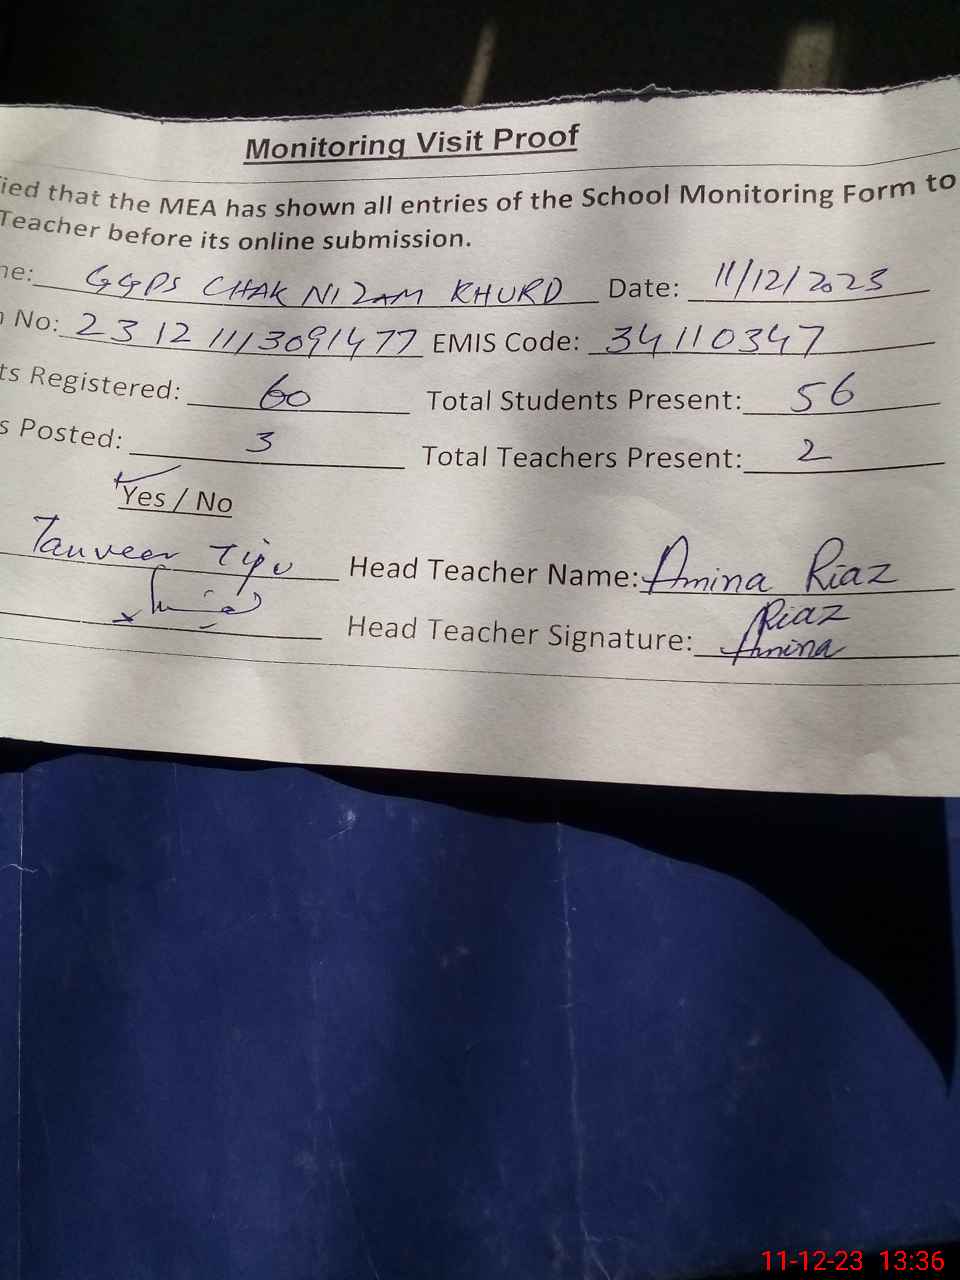 Monitoring Visit Proof
ied that the MEA has shown all entries of the School Monitoring Form to
Teacher before its online submission.
ne: GGPS CHAK NIZAM KHURD Date: 11/12/2023
No: 23 12 1113091477 EMIS Code: 34110347
ts Registered: 60 Total Students Present: 56
s Posted: 3 Total Teachers Present: 2
Yes / No
Tanveer Tipu Head Teacher Name: Amina Riaz
Riaz
Head Teacher Signature: Amina
11-12-23 13:36